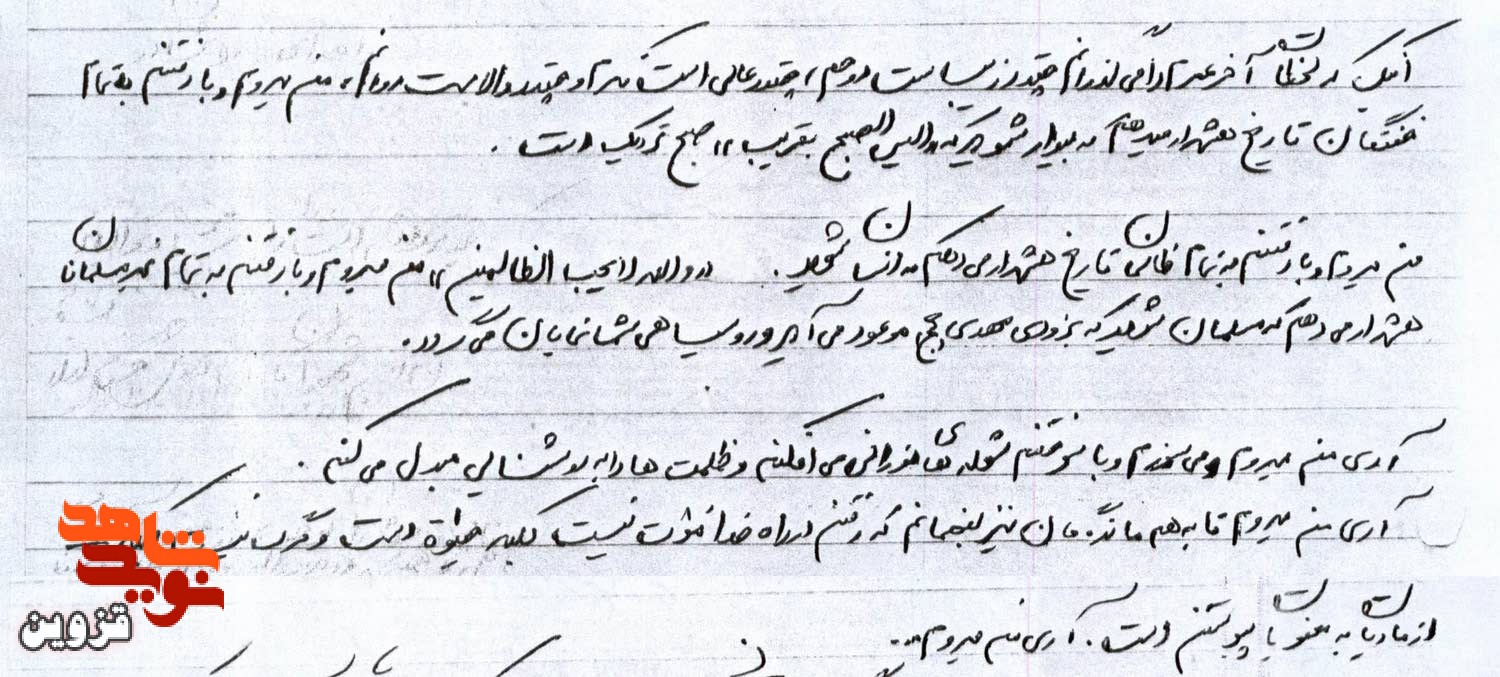 اینک که لحظات آخر عمرم را می گذرانم چقدر زیباست مرگم، چقدر عالی است و چقدر والاست من میروم و با رفتنم به تمام
خفتگان تاریخ هشدار میدهم که بیدار شوید که «الیس الصبح بقریب» صبح نزدیک است .
من میروم و با رفتنم به تمام ظالمان تاریخ هشدار می دهم که انسان شوید . «والله لا یحب الظالمین» من میروم و با رفتنم به تمام غیر مسلمانان
هشدار می دهم که مسلمان شوید که بزودی مهدی (عج) موعود می آید و روسیاهی شما نمایان می گردد.
آری من میروم و می سوزم و با سوختنم شعله های نورانی می افکنم و ظلمت ها را به روشنایی مبدل می کنم .
آری من میروم تا به هم ماندگان نیز بفهمانم که رفتن در راه خدا فوت نیست بلکه حیوة است و مرگ نیست بلکه
از مادیات به معنویات پیوستن است . آری من میروم ...
شاهد
نوید
قزوین